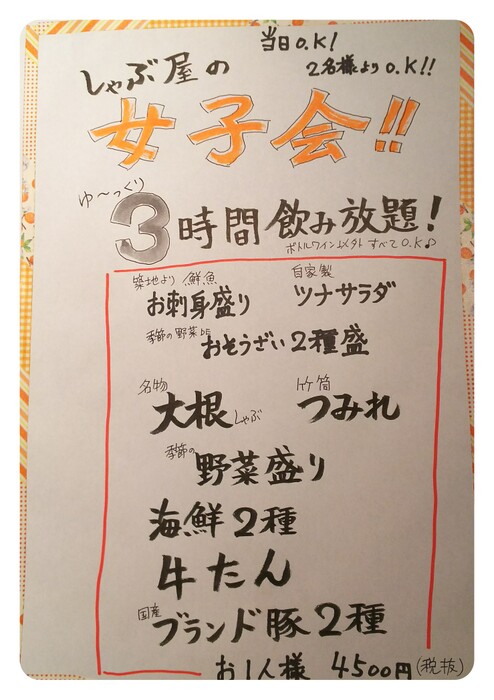 当日O.K!
2名様よりO.K!!
しゃぶ屋の
女子会!!
ゆ〜っくり
3時間飲み放題!
ボトルワイン以外すべてO.K♪
築地より鮮魚 自家製
お刺身盛り ツナサラダ
季節の野菜de おそうざい2種盛
名物 竹筒
大根しゃぶ つみれ
季節の 野菜盛り
海鮮2種
牛たん
国産 ブランド豚2種
お1人様 4500円(税抜)